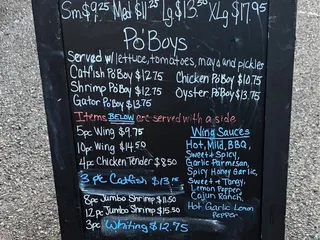 Sm $9.25 Med $11.25 Lg $13.50 XLg $17.95
Po'Boys
Served w/ lettuce, tomatoes, mayo and pickles
Catfish Po'Boy $12.75 Chicken Po'Boy $10.75
Shrimp Po'Boy $12.75 Oyster Po'Boy $13.75
Gator Po'Boy $13.75
Items BELOW are served with a side
5pc Wing $9.75
10pc Wing $14.50
4pc Chicken Tender $8.50
3pc Catfish
8pc Jumbo Shrimp $11.50
12pc Jumbo Shrimp $15.50
3pc Whiting $12.75
Wing Sauces
Hot, Mild, BBQ,
Sweet & Spicy,
Garlic Parmesan,
Spicy Honey Garlic,
Sweet & Tangy,
Lemon Pepper
Cajun Ranch,
Hot Garlic Lemon
Pepper